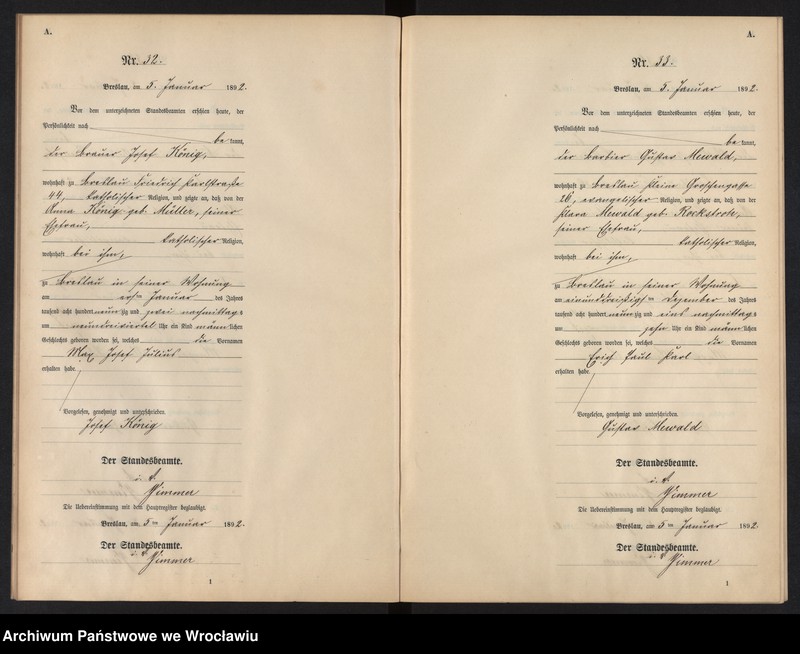 A.
Nr. 32.
Breslau, am 5. Januar 1892.
Vor dem unterzeichneten Standesbeamten erschien heute, der
Persönlichkeit nach
be kannt,
der Brauer Josef König,
wohnhaft zu Breslau Friedrich Karlstraße
44, katholischer Religion, und zeigte an, daß von der
Anna König geb. Müller, seiner
Ehefrau,
katholischer Religion,
wohnhaft bei ihm,
zu Breslau in seiner Wohnung
am ersten Januar des Jahres
tausend acht hundert neunzig und zwei nachmittags
um neundreiviertel Uhr ein Kind männlichen
Geschlechts geboren worden sei, welches die Vornamen
Max Josef Julius
erhalten habe.
Vorgelesen, genehmigt und unterschrieben.
Josef König
Der Standesbeamte.
Zimmer
Die Uebereinstimmung mit dem Hauptregister beglaubigt.
Breslau, am 5ten Januar 1892.
Der Standesbeamte.
Zimmer
1
A.
Nr. 33.
Breslau, am 5. Januar 1892.
Vor dem unterzeichneten Standesbeamten erschien heute, der
Persönlichkeit nach
be kannt,
der Barbier Gustav Mewald,
wohnhaft zu Breslau kleine Groschengasse
26, evangelischer Religion, und zeigte an, daß von der
Klara Mewald geb. Rockstroh,
seiner Ehefrau,
katholischer Religion,
wohnhaft bei ihm,
zu Breslau in seiner Wohnung
am einunddreißigsten Dezember des Jahres
tausend acht hundert neunzig und eins nachmittags
um zehn Uhr ein Kind männlichen
Geschlechts geboren worden sei, welches die Vornamen
Erich Paul Karl
erhalten habe.
Vorgelesen, genehmigt und unterschrieben.
Gustav Mewald
Der Standesbeamte.
Zimmer
Die Uebereinstimmung mit dem Hauptregister beglaubigt.
Breslau, am 5ten Januar 1892.
Der Standesbeamte.
Zimmer
1
Archiwum Państwowe we Wrocławiu